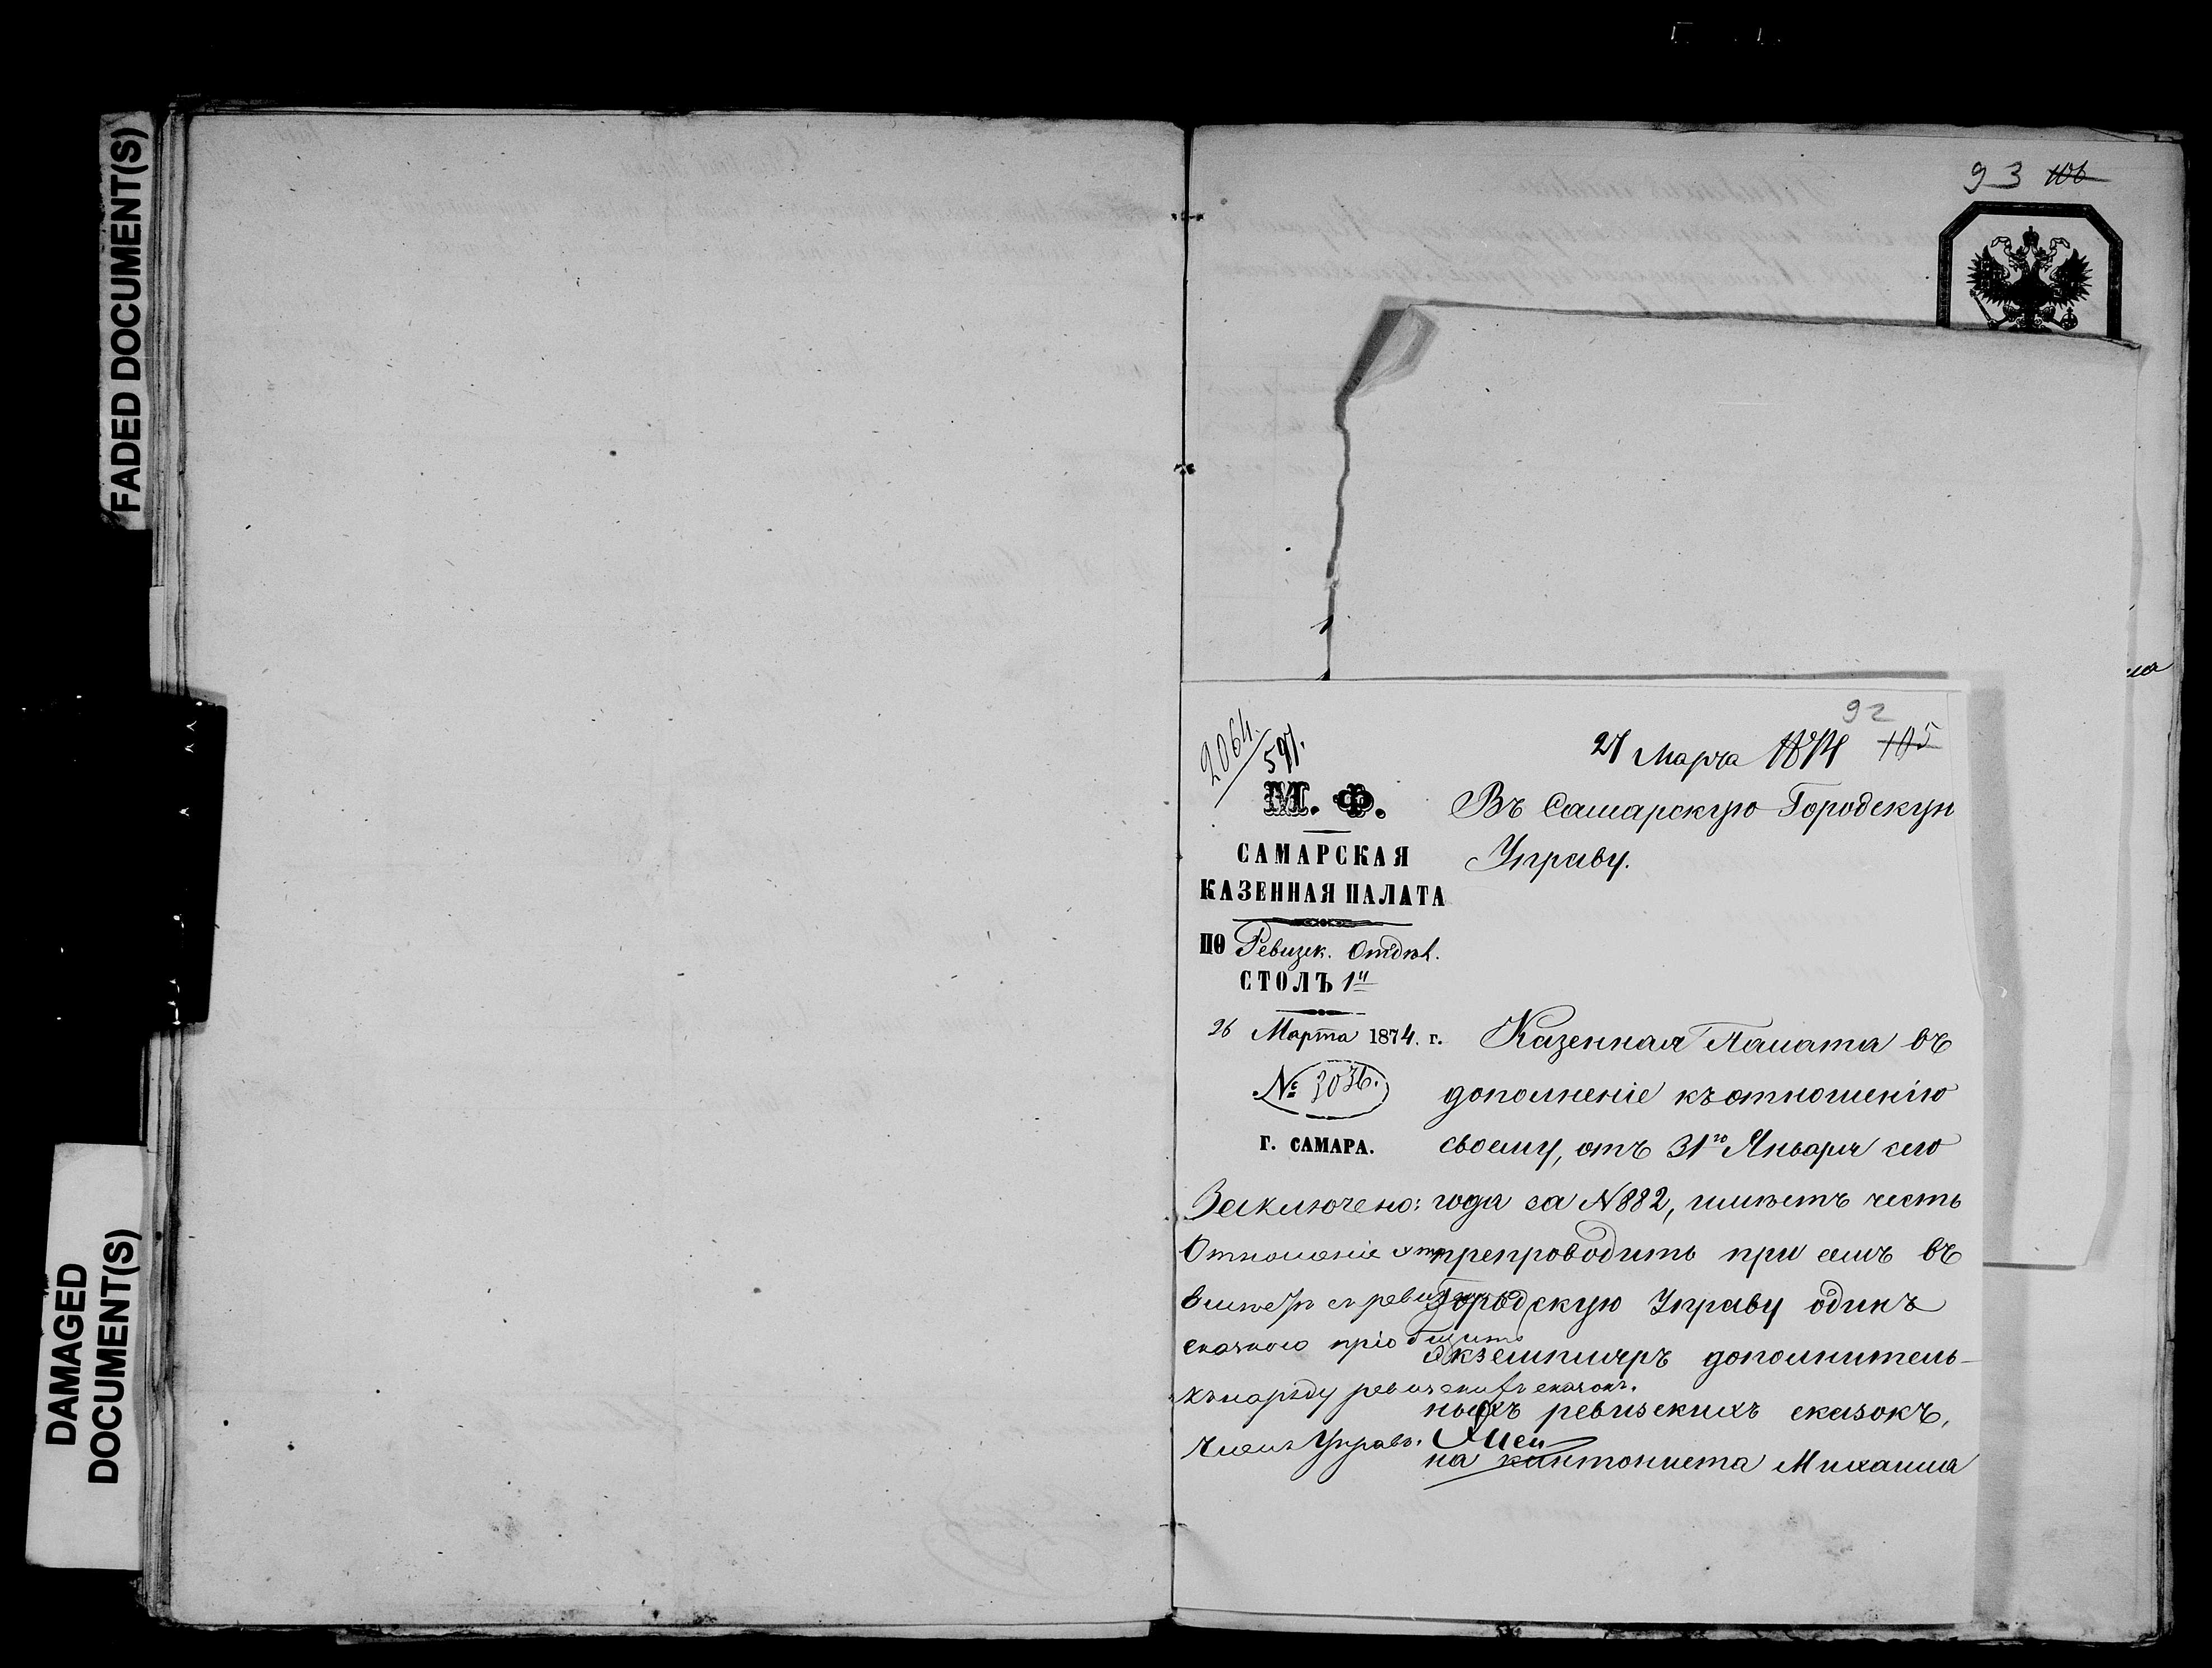 FADED DOCUMENT(S)
DAMAGED
DOCUMENT(S)
93 106
92
2064/597.
27 Марта 1874 105
М. Ф.
САМАРСКАЯ
КАЗЕННАЯ ПАЛАТА
ПО Ревизск. Отдѣл.
СТОЛЪ 1й
26 Марта 1874. г.
№ 3036.
Г. САМАРА.
Въ Самарскую Городскую
Управу.
Казенная Палата въ
дополненіе къ отношенію
своему, отъ 31го Января сего
года за №882, имѣетъ честь
препроводить при семъ въ
Городскую Управу одинъ
экземпляръ дополнитель-
ныхъ ревизскихъ сказокъ,
на кантониста Михаила
Заключено:
Отношеніе это
вмѣстѣ съ ревизскою
сказкою пріобщить
къ наряду ревизскихъ сказокъ.
Членъ Управы